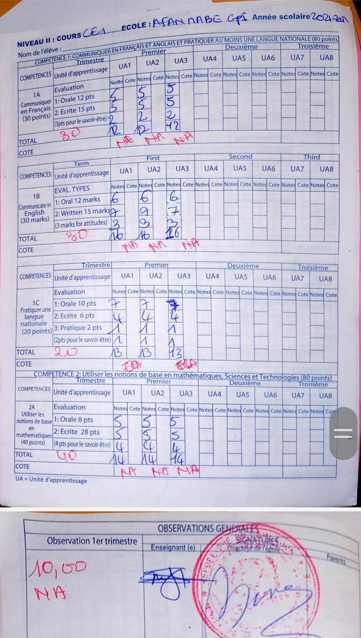 NIVEAU II : COURS CE1 ECOLE : Année scolaire
Nom de l'élève :
COMPETENCE 1: COMMUNIQUER EN FRANÇAIS ET ANGLAIS ET PRATIQUER AU MOINS UNE LANGUE NATIONALE (80 points)
Trimestre Premier Deuxième Troisième
COMPETENCES Unité d'apprentissage UA1 UA2 UA3 UA4 UA5 UA6 UA7 UA8
Evaluation Notes Cote Notes Cote Notes Cote Notes Cote Notes Cote Notes Cote Notes Cote Notes Cote
1A
Communiquer
en Français
(30 points)
1: Orale 12 pts 5 5 5
2: Ecrite 15 pts 5 5 5
(3pts pour le savoir-être) 2 2 2
TOTAL 30 12 12 12
COTE NA NA NA
Term First Second Third
COMPETENCES Unité d'apprentissage UA1 UA2 UA3 UA4 UA5 UA6 UA7 UA8
EVAL TYPES Notes Cote Notes Cote Notes Cote Notes Cote Notes Cote Notes Cote Notes Cote Notes Cote
1B
Communicate in
English
(30 marks)
1: Oral 12 marks 6 6 6
2: Written 15 marks 7 7 7
(3 marks for attitudes) 3 3 3
TOTAL 30 16 16 16
COTE NA NA NA
Trimestre Premier Deuxième Troisième
COMPETENCES Unité d'apprentissage UA1 UA2 UA3 UA4 UA5 UA6 UA7 UA8
Evaluation Notes Cote Notes Cote Notes Cote Notes Cote Notes Cote Notes Cote Notes Cote Notes Cote
1C
Pratiquer une
langue
nationale
(20 points)
1: Orale 10 pts 7 7 7
2: Ecrite 6 pts 4 4 4
3: Pratique 2 pts 1 1 1
(2pts pour le savoir-être) 1 1 1
TOTAL 20 13 13 13
COTE
COMPETENCE 2: Utiliser les notions de base en mathématiques, Sciences et Technologies (80 points)
Trimestre Premier Deuxième Troisième
COMPETENCES Unité d'apprentissage UA1 UA2 UA3 UA4 UA5 UA6 UA7 UA8
Evaluation Notes Cote Notes Cote Notes Cote Notes Cote Notes Cote Notes Cote Notes Cote Notes Cote
2A
Utiliser les
notions de base
en
mathematiques
(40 points)
1: Orale 8 pts 5 5 5
2: Ecrite 28 pts 5 5 5
(4 pts pour le savoir-être) 4 4 4
TOTAL 40 14 14 14
COTE NA NA NA
UA = Unité d'apprentissage
OBSERVATIONS GENERALES
Observation 1er trimestre Enseignant (e) SIGNATURES Parents
10,00
NA